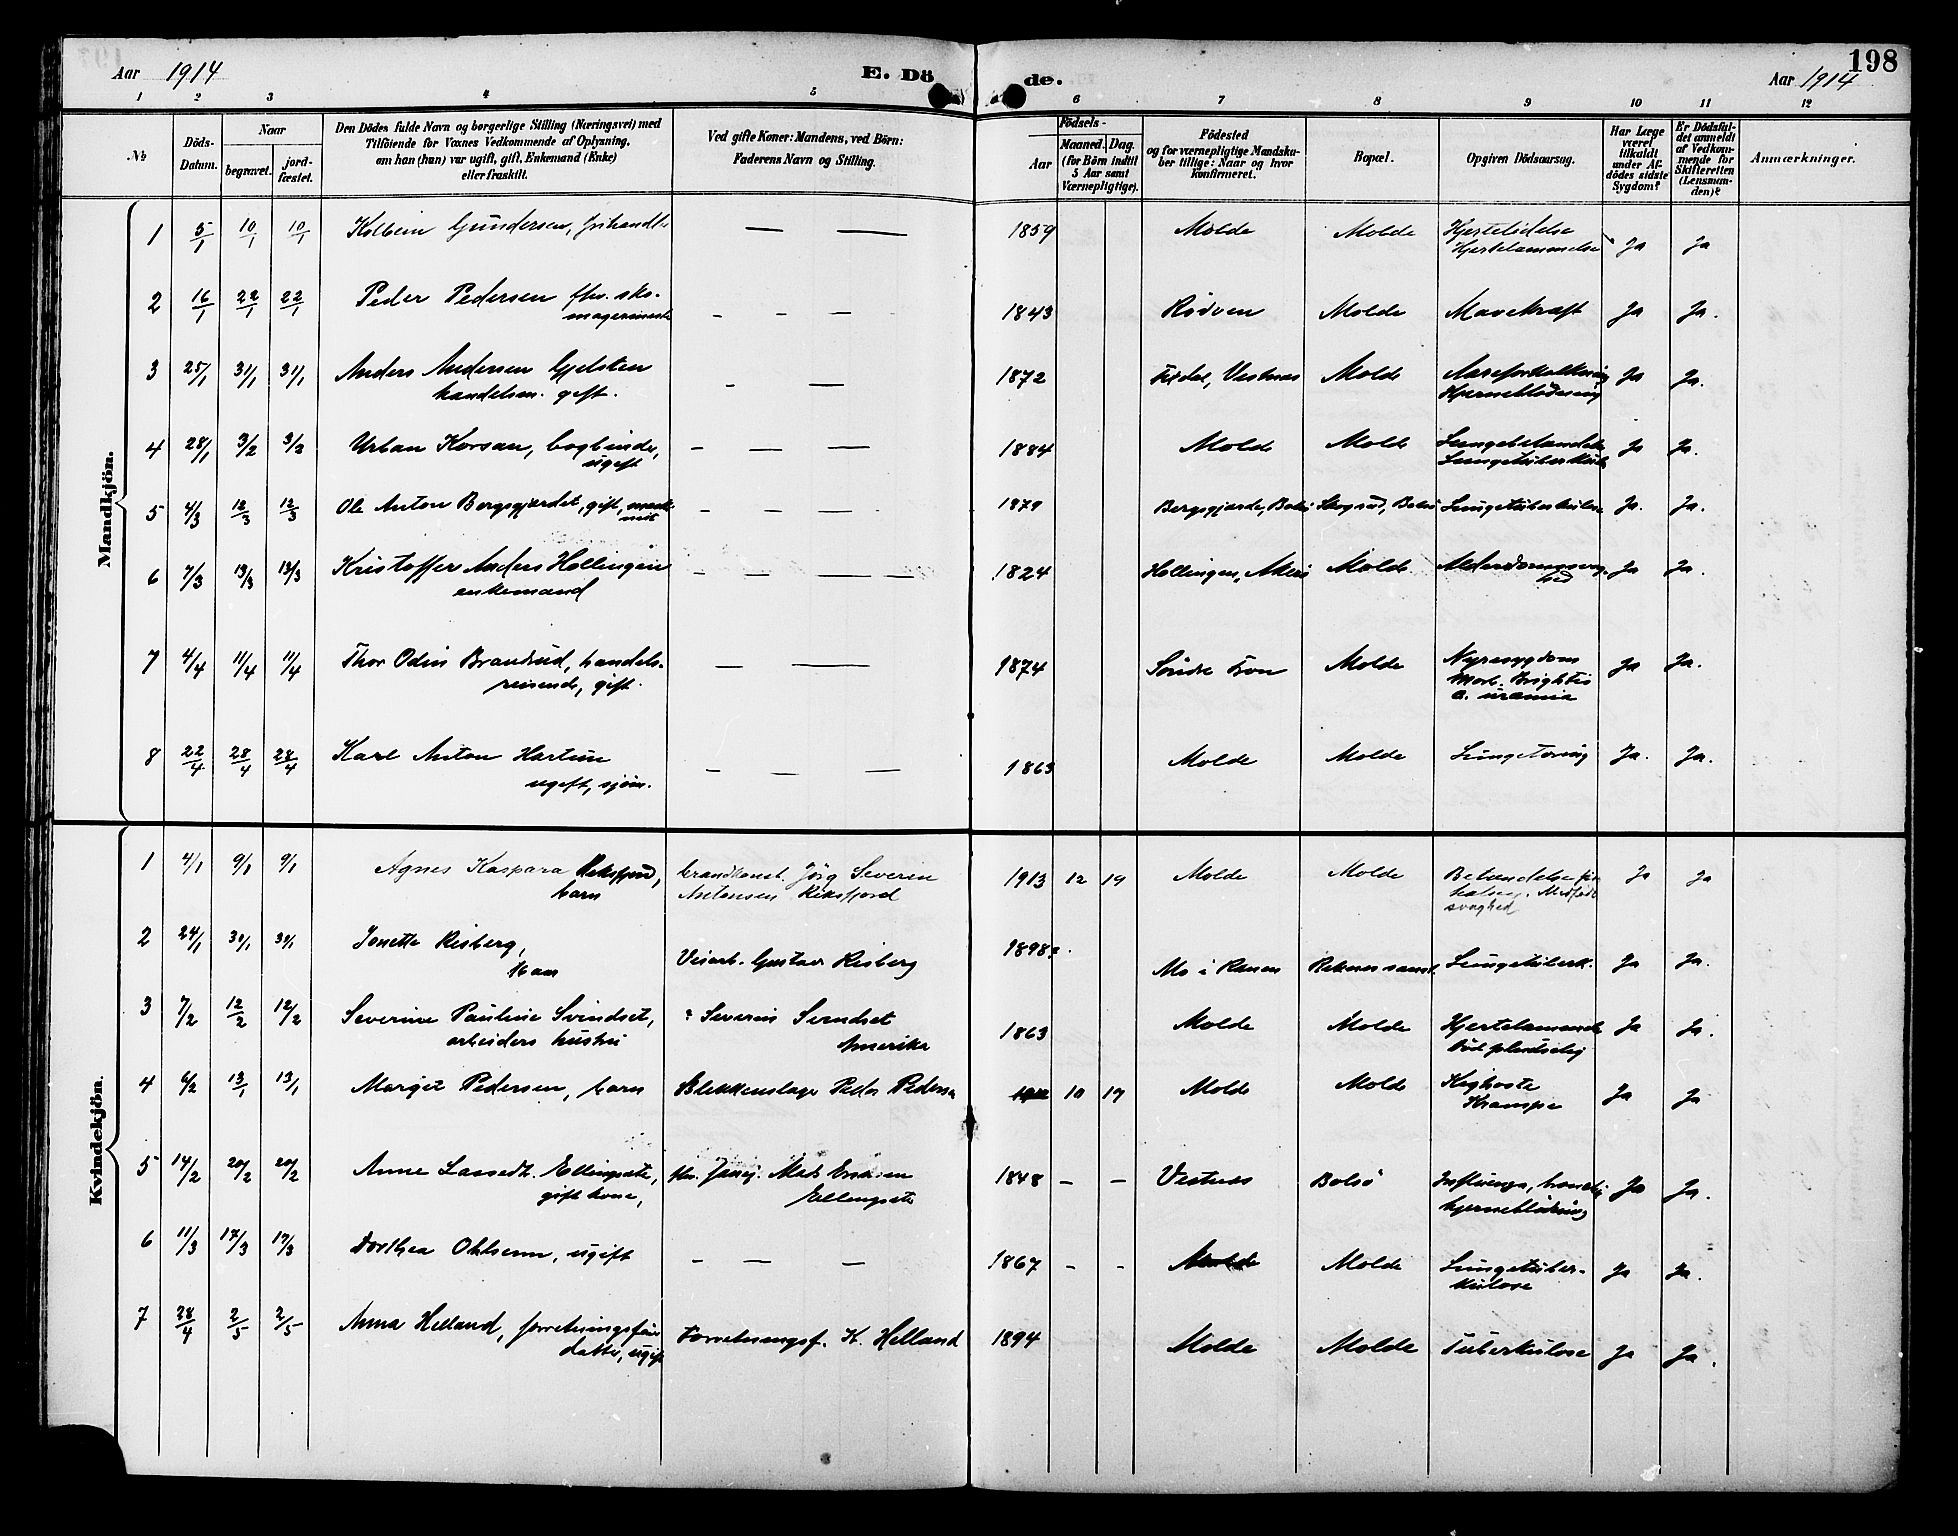 Aar 1914
E. Dö
de.
198
Aar 1914
1 2 3 4 5 6 7 8 9 10 11 12
No
Döds-
Datum.
Naar
begravet.
jord-
fæstet.
Den Dödes fulde Navn og borgerlige Stilling (Næringsvei) med
Tilföiende for Voxnes Vedkommende af Oplysning,
om han (hun) var ugift, gift, Enkemand (Enke)
eller fraskilt.
Ved gifte Koner: Mandens, ved Börn:
Faderens Navn og Stilling.
Födsels-
Aar
Maaned. Dag.
(for Börn indtil
5 Aar samt
Værnepligtige).
Födested
og for værnepligtige Mandska-
ber tillige: Naar og hvor
konfirmeret.
Bopæl.
Opgiven Dödsaarsag.
Har Læge
været
tilkaldt
under Af-
dödes sidste
Sygdom?
Er Dödsfal-
det anmeldt
af Vedkom-
mende for
Skifteretten
(Lensman-
den)?
Anmærkninger.
Mandkjön.
1 5/1 10/1 10/1 Kolbein Gundersen, — — 1859 Molde Molde Hjertelidelse
Hjertelammelse Ja Ja
2 16/1 22/1 22/1 Peder Pedersen fhv. sko-
magermester - - — - 1843 Rödven Molde Mavekræft Ja Ja.
3 25/1 31/1 31/1 Anders Andersen Gjelsten
handelsm. gift. - — 1872 Vestnes Molde Aareforkalkning
Hjerneblödning Ja Ja.
4 28/1 3/2 3/2 Urban Korsan, bogbinder,
ugift - — — 1884 Molde Molde Lungebetændelse
Lungetuberkul. Ja Ja.
5 4/3 12/3 12/3 Ole Anton Bergsgjærdet, gift, - - — 1879 Bergsgjærde, Bolsö Bolsö Lungetuberkulose Ja. Ja.
6 7/3 13/3 13/3 Kristoffer Anders Hollingen
enkemand - — — — 1824 Hollingen, Akerö Molde Alderdomssvag-
hed Ja Ja.
7 4/4 11/4 11/4 Thor Odin Brandrud, handels-
reisende, gift. — — 1874 Söndre Fron Molde Nyresygdom
Morb. Brightii
c. uræmia Ja Ja.
8 22/4 28/4 28/4 Karl Anton Hartun
ugift, sjöm. - — — 1863 Molde Molde Lungetæring Ja. Ja.
Kvindekjön.
1 4/1 9/1 9/1 Agnes Kaspara Reksfjord,
barn brandkonst. Jörg Severin
Antonsen Reksfjord 1913 12 19 Molde Molde Betændelse
Medfödt
svaghed Ja Ja
2 24/1 30/1 30/1 Jonette Risberg,
16 aar Veiarb. Gustav Risberg 1898? Mo i Ranen Reknes sanat. Lungetuberk. Ja Ja.
3 7/2 12/2 12/2 Severine Pauline Svindset,
arbeiders hustru ? Severin Svindset
Amerika 1863 Molde Molde Hjertelammelse
Död pludselig Ja Ja.
4 6/2 13/1 13/1 Margit Pedersen, barn Blikkenslager Peder Pedersen 10 17 Molde Molde Kighoste
Krampe Ja Ja
5 14/2 20/2 20/2 Anne Lassedt. Ellingsæte,
gift kone, Mats Eriksen
Ellingsæte 1848 - - Vestnes Bolsö Influenza,
hjerneblödning Ja Ja.
6 11/3 17/3 17/3 Dorthea Ohlsenn, ugift - — — 1867 - - Molde Molde Lungetuber-
kulose Ja Ja.
7 28/4 2/5 2/5 Anna Helland, forretningsförer
datter, ugift Forretningsf. K. Helland 1894 Molde Molde Tuberkulose Ja Ja.